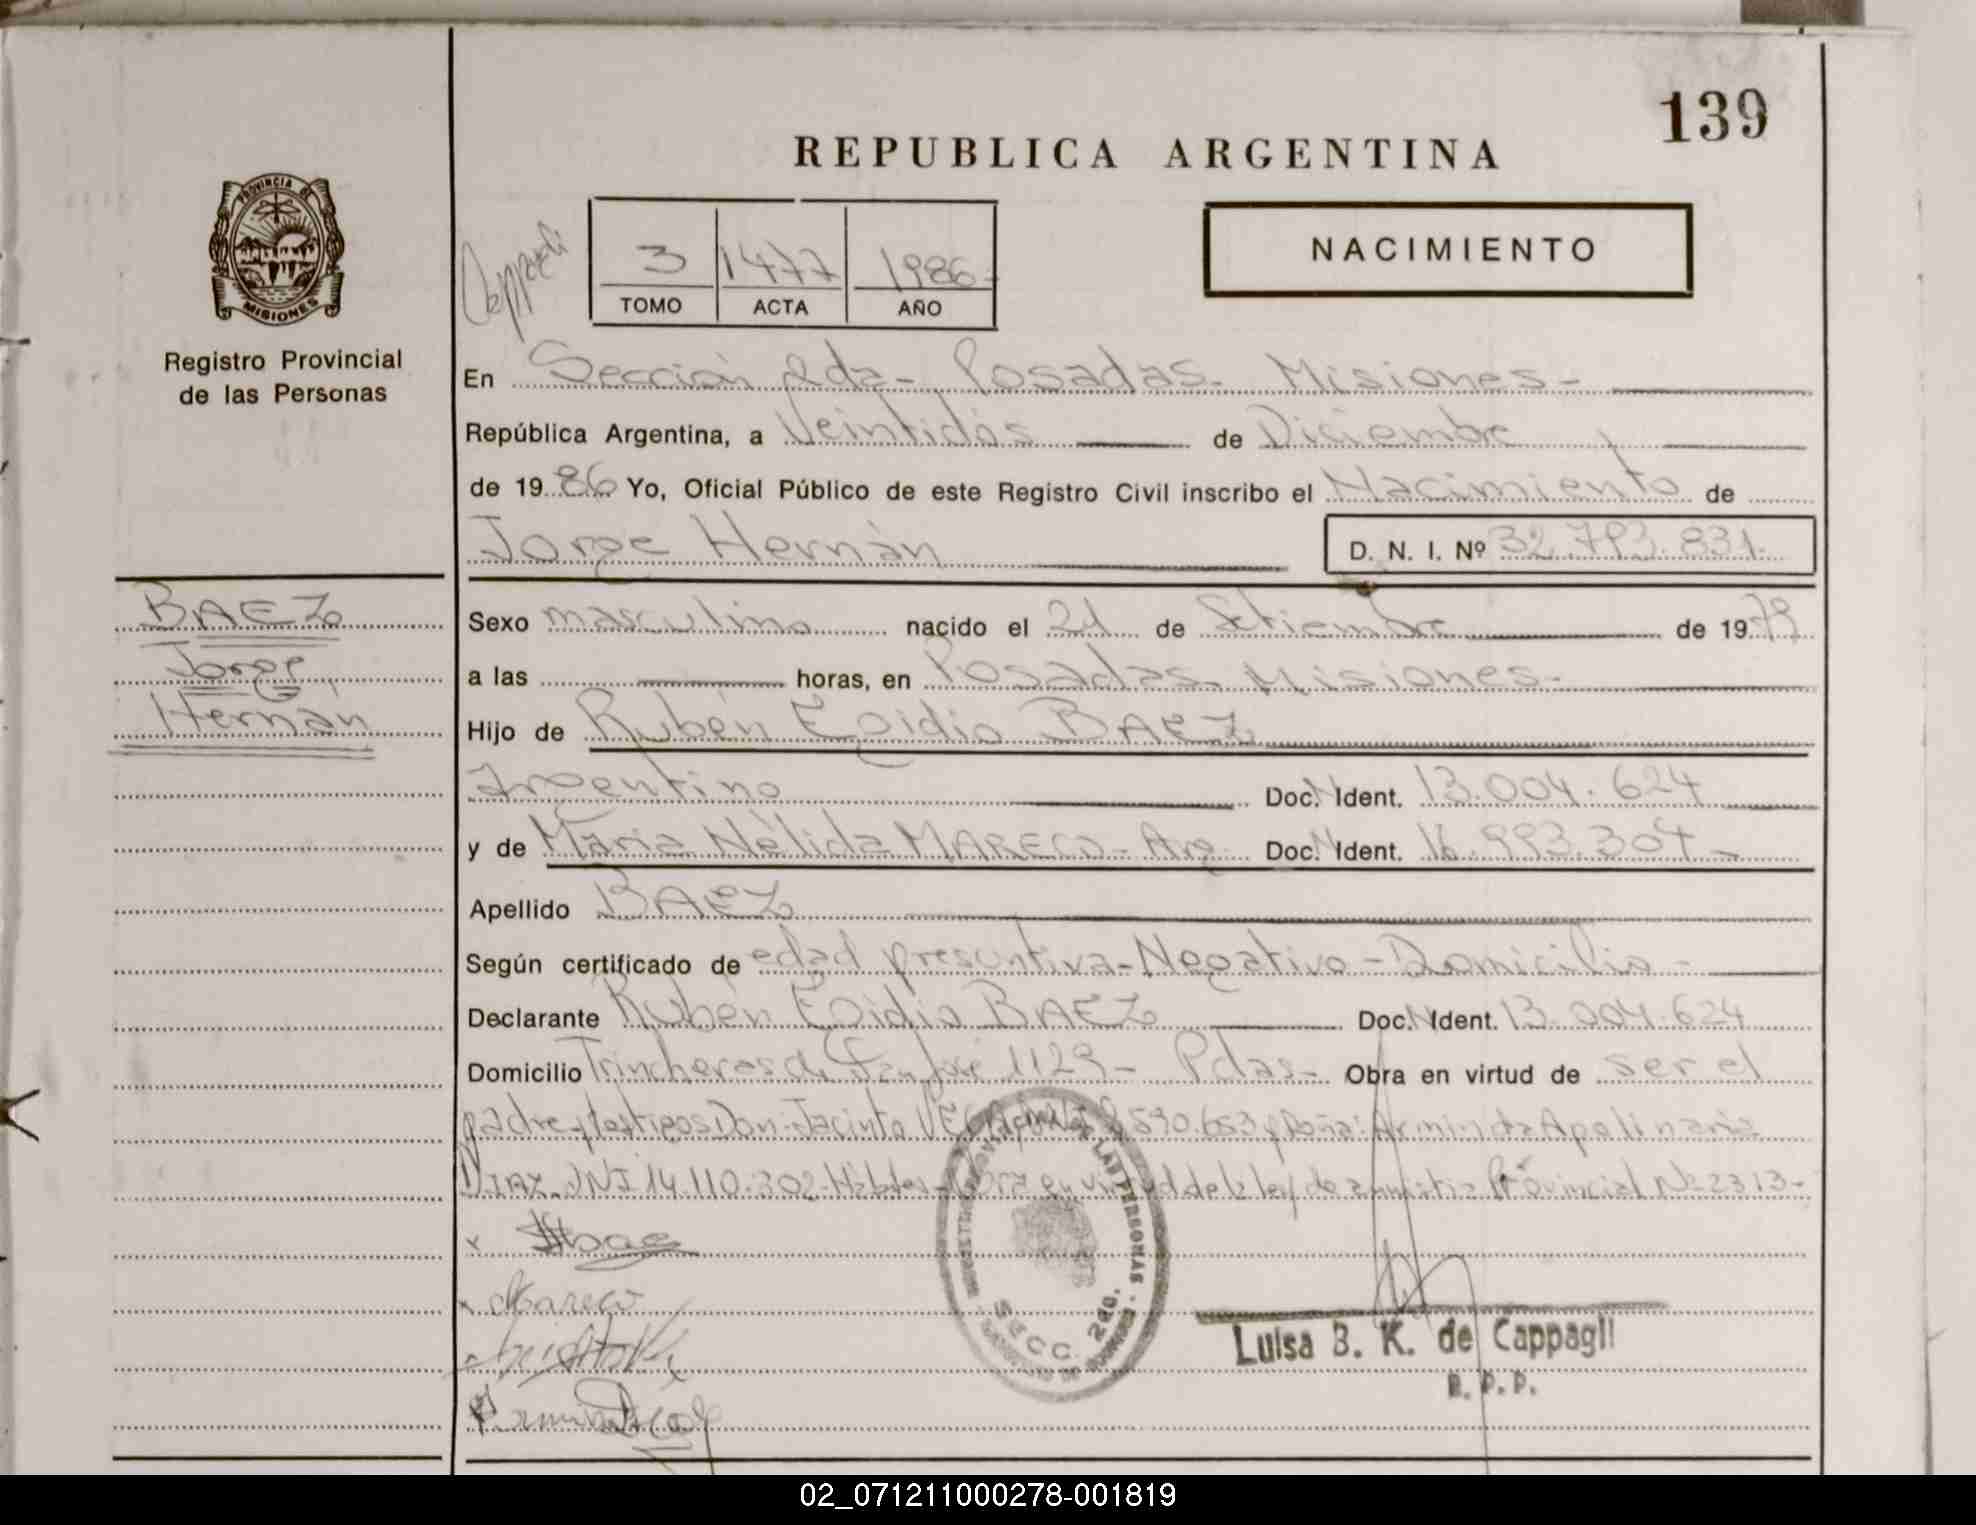 139
REPUBLICA ARGENTINA
PROVINCIA DE
MISIONES
Registro Provincial
de las Personas
3 1477 1986
TOMO ACTA AÑO
NACIMIENTO
En Sección 2da- Posadas- Misiones-
República Argentina, a Veintidós de Diciembre
de 1986 Yo, Oficial Público de este Registro Civil inscribo el Nacimiento de
Jorge Hernán D. N. I. Nº 32.793.831.
BAEZ
Jorge
Hernán
Sexo masculino nacido el 21 de Setiembre de 1979
a las horas, en Posadas- Misiones-
Hijo de Rubén Egidio BAEZ
Argentino Doc. Ident. 13.004.624
y de María Nélida MARECO- Arg. Doc. Ident. 16.993.304-
Apellido BAEZ
Según certificado de edad presuntiva-Negativo-Domicilio-
Declarante Rubén Egidio BAEZ Doc. Ident. 13.004.624
Domicilio Trincheras de San José 1129- Pdas- Obra en virtud de ser el
padre y testigos Don: Jacinto 590.653 y Doña: Arminda Apolinaria
DIAZ DNI 14.110.302- Hables- Obra en virtud de la ley de amnistia Provincial Nº 2313-
SECC. 2da.
Luisa B. K. de Cappagli
02_071211000278-001819